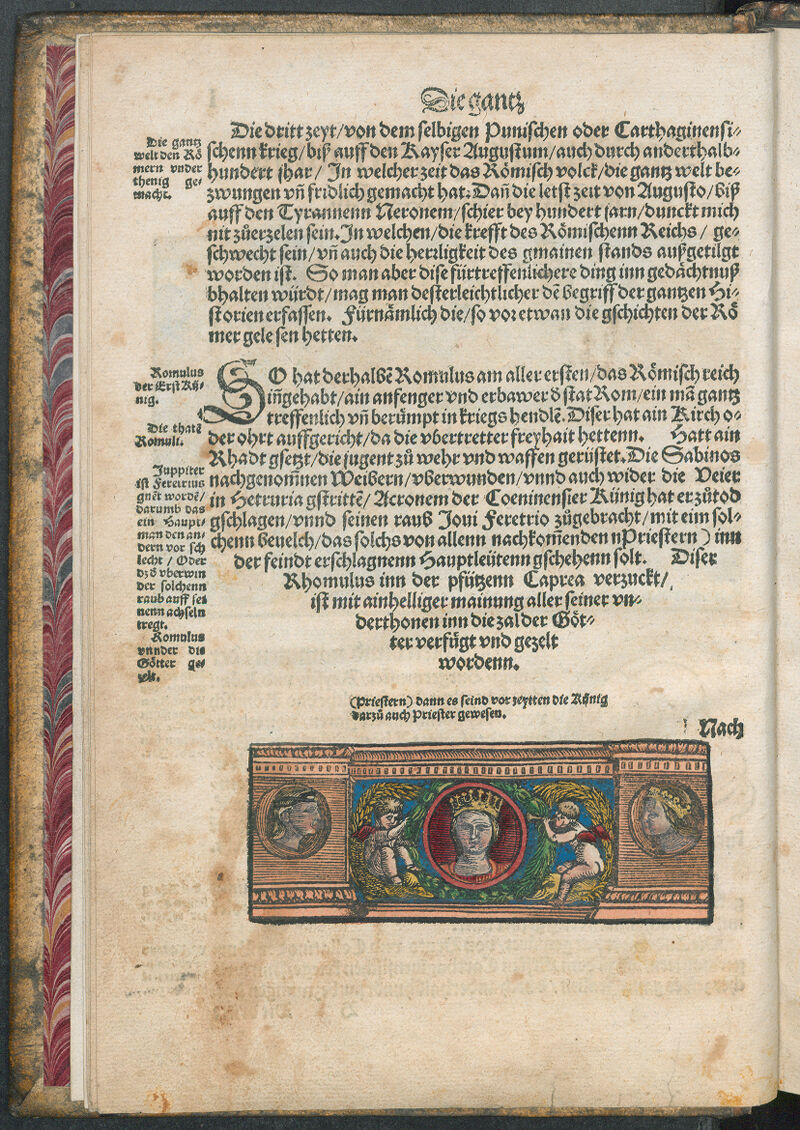 Die gantz
Die dritt zeyt/von dem selbigen Punischen oder Carthaginensi⸗
schenn krieg/biß auff den Kayser Augustum/auch durch anderthalb⸗
hundert jhar/ In welcher zeit das Römisch volck/die gantz welt be⸗
zwungen vñ fridlich gemacht hat. Dañ die letst zeit von Augusto/biß
auff den Tyrannenn Neronem/schier bey hundert jarn/dunckt mich
nit zůerzelen sein. In welchen/die krefft des Römischenn Reichs/ ge⸗
schwecht sein/vñ auch die herzligkeit des gmainen stands außgetilgt
worden ist. So man aber dise fürtreffenlichere ding inn gedächtnuß
bhalten würdt/mag man desterleichtlicher dē begriff der gantzen Hi⸗
storien erfassen. Fürnämlich die/so vor etwan die gschichten der Rö
mer gelesen hetten.
Die gantz
welt den Rö
mern vnder
thenig ge⸗
macht.
SO hat derhalbē Romulus am aller ersten/das Römisch reich
iñgehabt/ain anfenger vnd erbawer d̄ stat Rom/ein mā gantz
treffenlich vñ berümpt in kriegs hendlē. Diser hat ain Kirch o⸗
der ohrt auffgericht/da die vbertretter freyhait hettenn. Hatt ain
Rhadt gsetzt/die jugent zů wehr vnd waffen gerüstet. Die Sabinos
nachgenom̄nen Weibern/vberwunden/vnnd auch wider die Veier
in Hetruria gstrittē/Acronem der Coeninensier Künig hat er zůtod
gschlagen/vnnd seinen raub Joui Feretrio zůgebracht/mit eim sol⸗
chenn beuelch/das solchs von allenn nachkom̄enden nPriestern) inn
der feindt erschlagnenn Hauptleütenn gschehenn solt. Diser
Rhomulus inn der pfützenn Caprea verzuckt/
ist mit ainhelliger mainung aller seiner vn⸗
derthonen inn die zal der Göt⸗
ter verfügt vnd gezelt
wordenn.
Romulus
der Erst Kü⸗
nig.
Die thatē
Romuli.
Juppiter
ist Feretrius
gnēt wordē/
darumb das
ein Haupt⸗
man den an⸗
dern vor sch
lecht/ Oder
dz d̄ vberwin
der solchenn
raub auff sei
nenn achseln
tregt.
Romulus
vnnder die
Götter ge⸗
zelt.
(Priestern) dann es seind vor zeytten die Künig
darzů auch Priester gewesen.
Nach